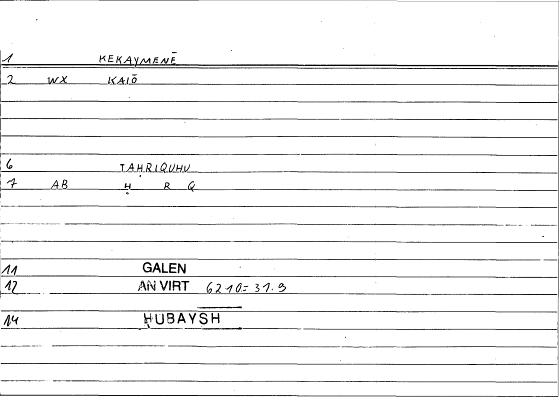 1 KEKAYMENĒ
2 WX KAIŌ
6 TAḤRIQUHU
7 AB Ḥ R Q
11 GALEN
12 AN VIRT 6210=31.9
14 ḤUBAYSH